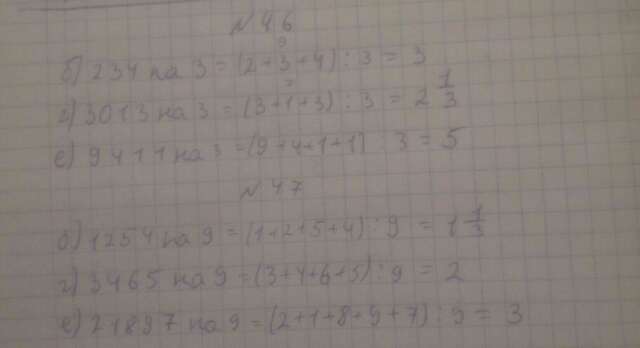 №46
б) 234 на 3 = (2+3+4) : 3 = 3
г) 3013 на 3 = (3+1+3) : 3 = 2 1/3
е) 9411 на 3 = (9+4+1+1) : 3 = 5
№47
б) 1254 на 9 = (1+2+5+4) : 9 = 1 1/3
г) 3465 на 9 = (3+4+6+5) : 9 = 2
е) 21897 на 9 = (2+1+8+9+7) : 9 = 3